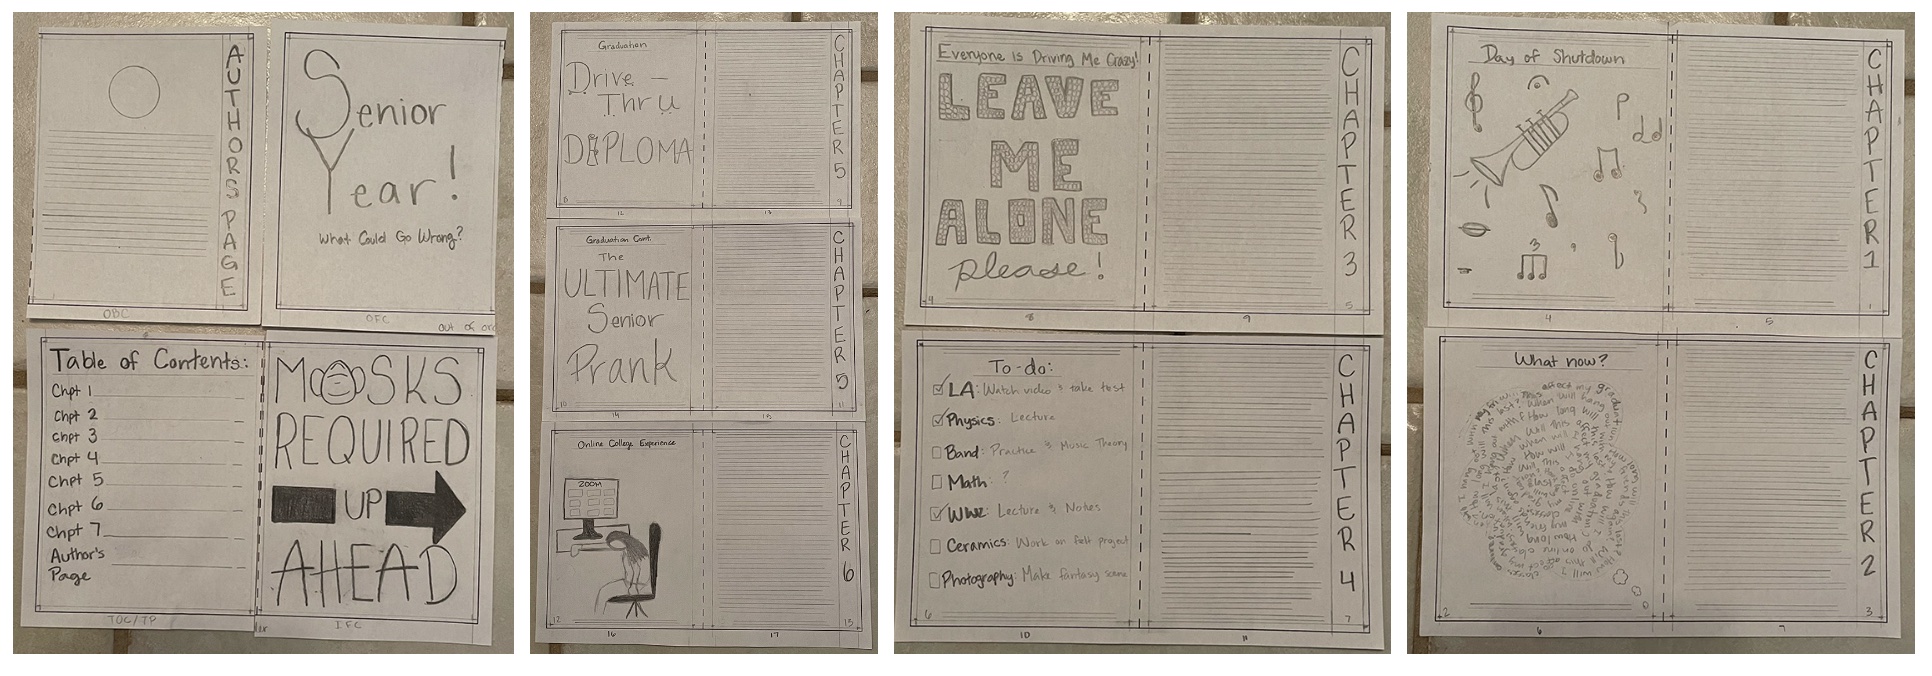 AUTHORS PAGE
OBC
Senior
Year!
What Could Go Wrong?
OFC
out of
Table of Contents:
Chpt 1
Chpt 2
Chpt 3
Chpt 4
Chpt 5
Chpt 6
Chpt 7
Author's
Page
TOC/TP
MASKS
REQUIRED
UP
AHEAD
IFC
Graduation
Drive -
Thru
DIPLOMA
8
12
CHAPTER 5
9
13
Graduation Cont.
The
ULTIMATE
Senior
Prank
10
14
CHAPTER 5
11
15
Online College Experience
ZOOM
12
16
CHAPTER 6
13
17
Everyone Is Driving Me Crazy!
LEAVE
ME
ALONE
please!
4
8
CHAPTER 3
5
9
To-do:
LA: Watch video & take test
Physics: Lecture
Band: Practice & Music Theory
Math: ?
WWZ: Lecture & Notes
Ceramics: Work on felt project
Photography: Make fantasy scene
6
10
CHAPTER 4
7
11
Day of Shutdown
3
4
CHAPTER 1
1
5
What now?
2
6
CHAPTER 2
3
7